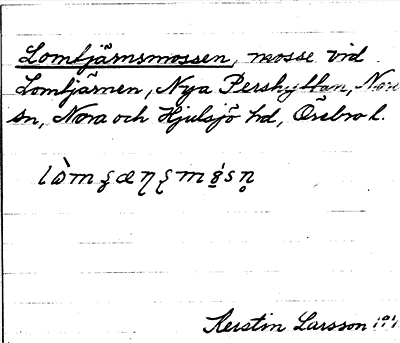 Lomtjärnsmossen, mosse vid
Lomtjärnen, Nya Pershyttan, Nora
sn, Nora och Hjulsjö hd, Örebro l.
Kerstin Larsson